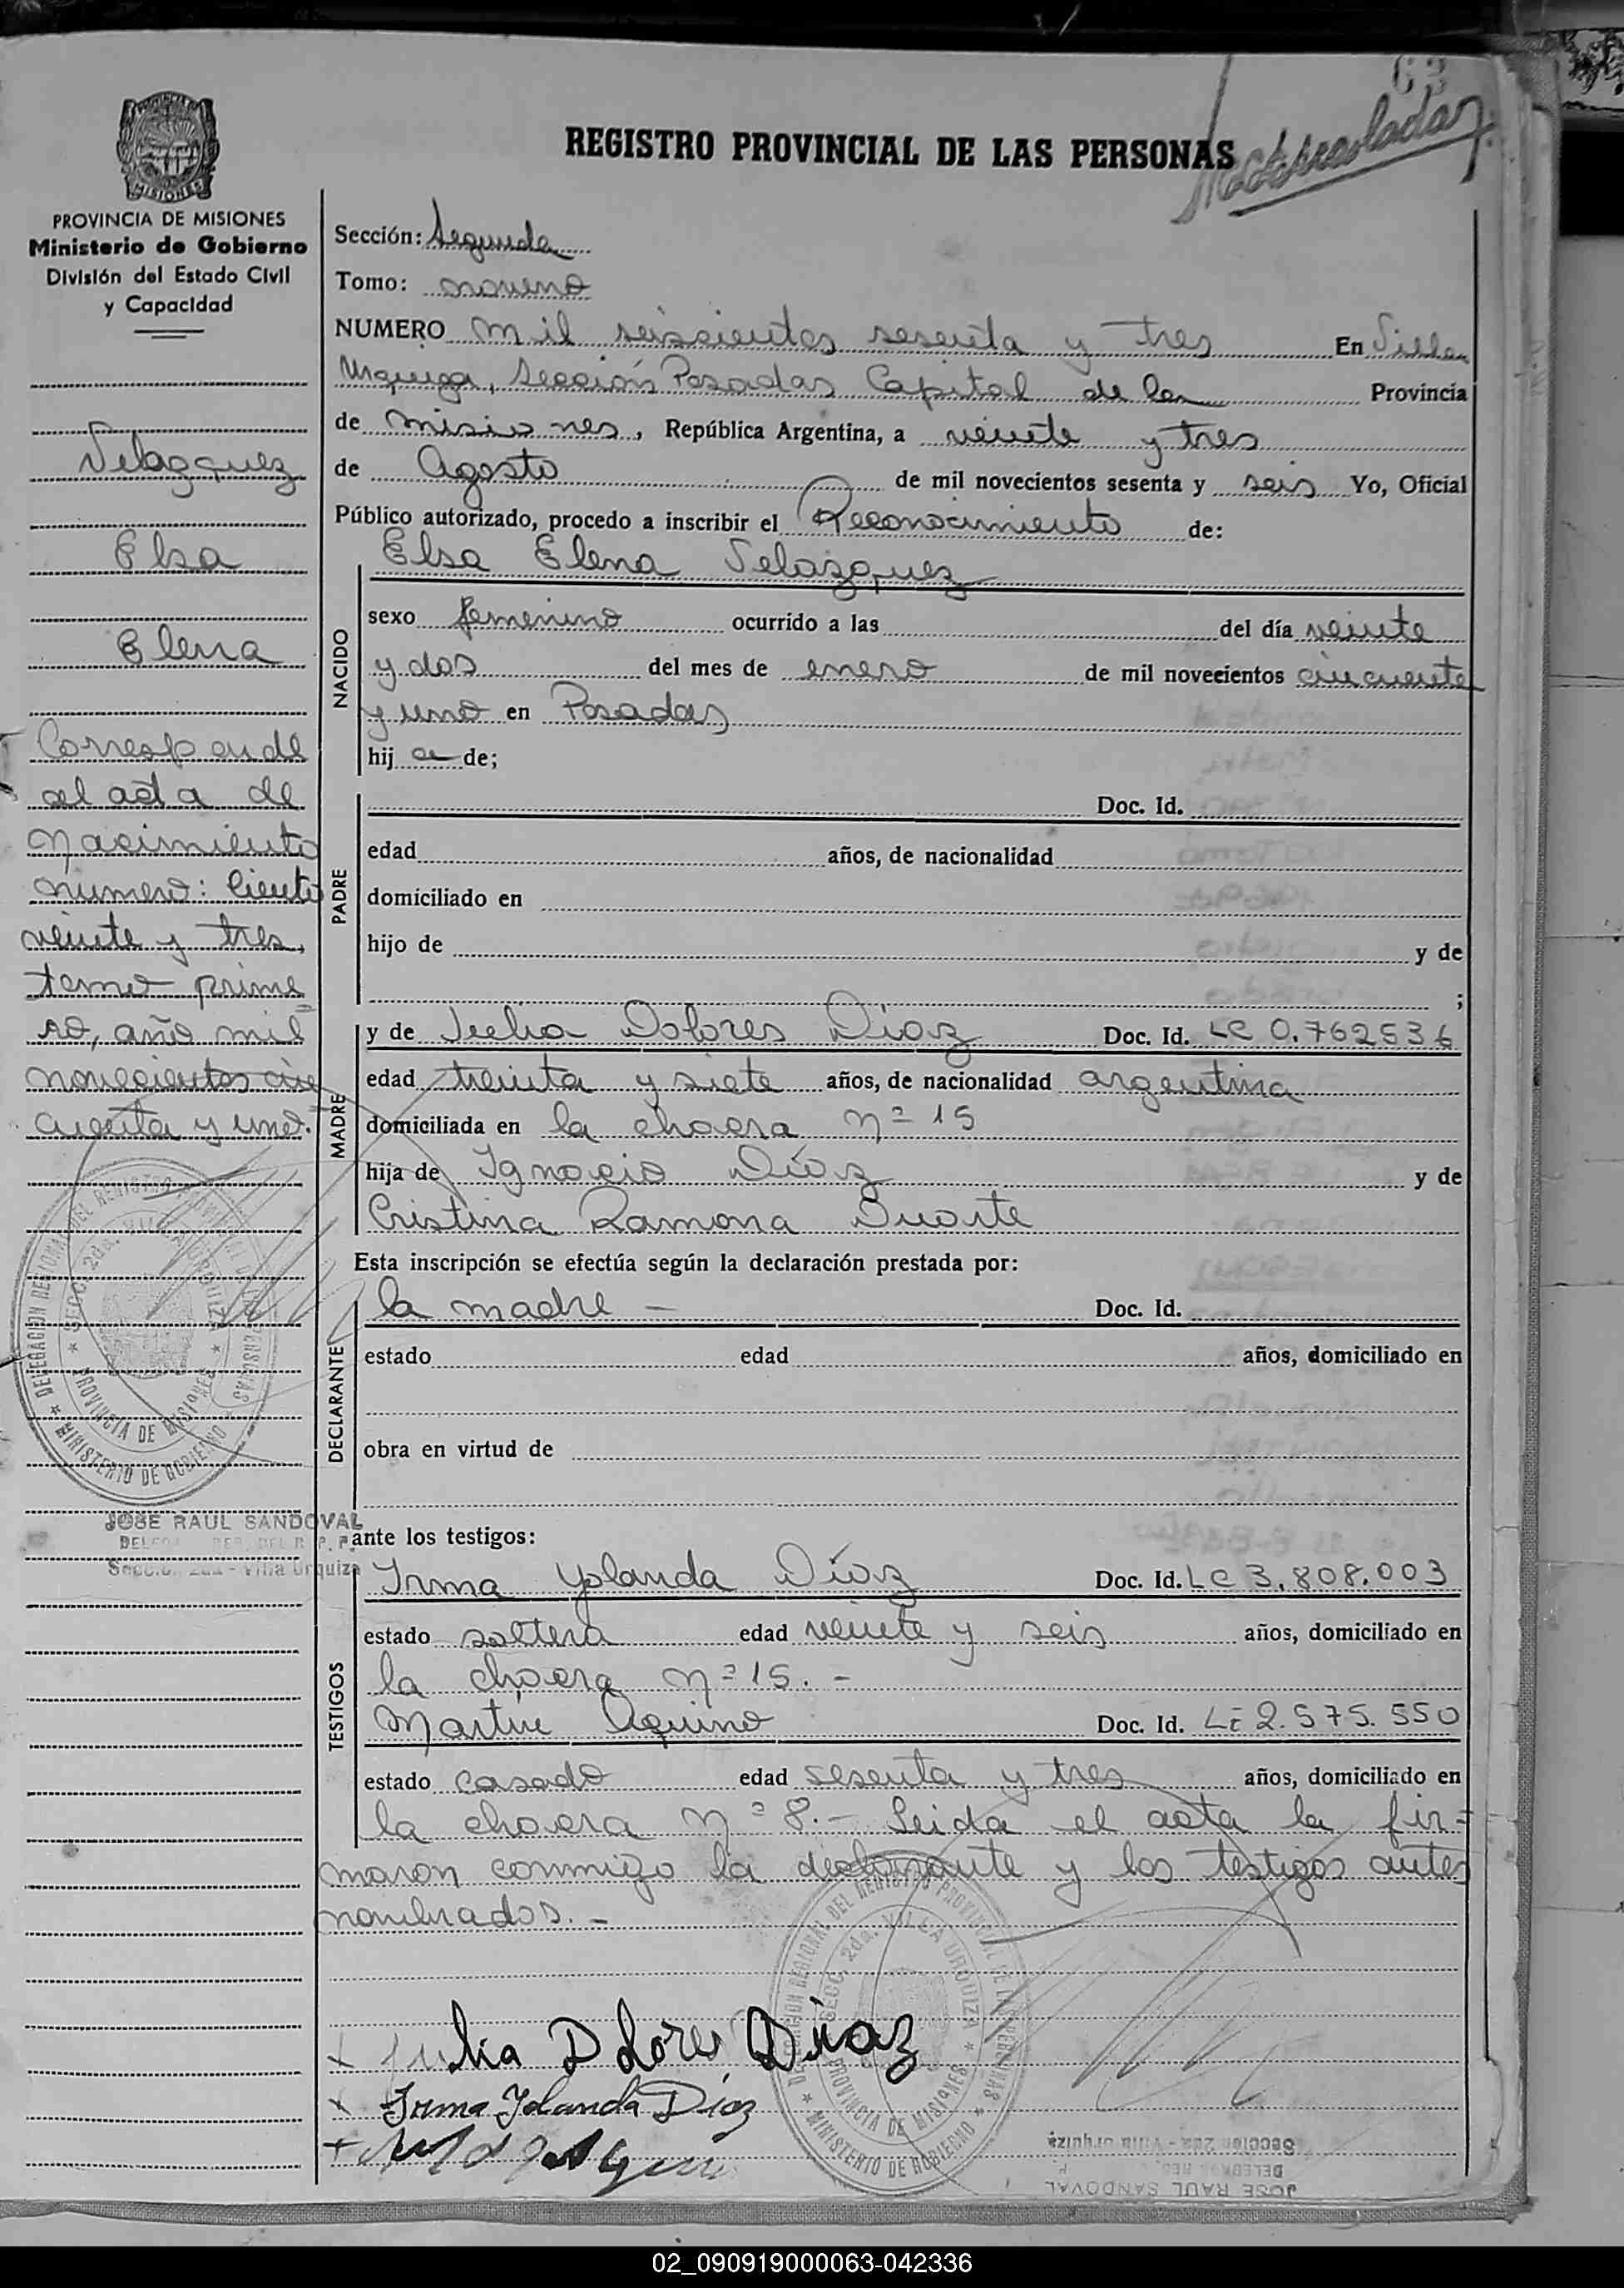 REGISTRO PROVINCIAL DE LAS PERSONAS
63
MISIONES
PROVINCIA DE MISIONES
Ministerio de Gobierno
División del Estado Civil
y Capacidad
Velazquez
Elsa
Elena
Corresponde
al acta de
Nacimiento
número: ciento
veinte y tres,
tomo prime=
ro, año mil
novecientos cin
cuenta y uno.
DELEGACION REGIONAL DEL REGISTRO PROVINCIAL DE LAS PERSONAS
SECC. 2da. VILLA URQUIZA
PROVINCIA DE MISIONES
MINISTERIO DE GOBIERNO
JOSE RAUL SANDOVAL
Secc. 2da - Villa Urquiza
Sección: Segunda
Tomo: noveno
NUMERO mil seiscientos sesenta y tres En Villa
Urquiza, Sección Posadas Capital de la Provincia
de misiones, República Argentina, a veinte y tres
de Agosto de mil novecientos sesenta y seis Yo, Oficial
Público autorizado, procedo a inscribir el Reconocimiento de:
Elsa Elena Velazquez
NACIDO
sexo femenino ocurrido a las del día veinte
y dos del mes de enero de mil novecientos cincuenta
y uno en Posadas
hij a de;
PADRE
Doc. Id.
edad años, de nacionalidad
domiciliado en
hijo de y de
;
MADRE
y de Julia Dolores Díaz Doc. Id. LC 0.762536
edad treinta y siete años, de nacionalidad argentina
domiciliada en la chacra nº 15
hija de Ignacio Díaz y de
Cristina Ramona Duarte
Esta inscripción se efectúa según la declaración prestada por:
DECLARANTE
la madre - Doc. Id.
estado edad años, domiciliado en
obra en virtud de
ante los testigos:
TESTIGOS
Irma Yolanda Díaz Doc. Id. LC 3.808.003
estado soltera edad veinte y seis años, domiciliado en
la chacra nº 15. -
Martín Aquino Doc. Id. LE 2.575.550
estado casado edad sesenta y tres años, domiciliado en
la chacra nº 8. - Leida el acta la fir=
maron conmigo la declarante y los testigos antes
nombrados. -
Julia Dolores Díaz
Irma Yolanda Díaz
DELEGACION REGIONAL DEL REGISTRO PROVINCIAL DE LAS PERSONAS
SECC. 2da. VILLA URQUIZA
PROVINCIA DE MISIONES
MINISTERIO DE GOBIERNO
Sección 2da. - Villa Urquiza
JOSE RAUL SANDOVAL
02_090919000063-042336